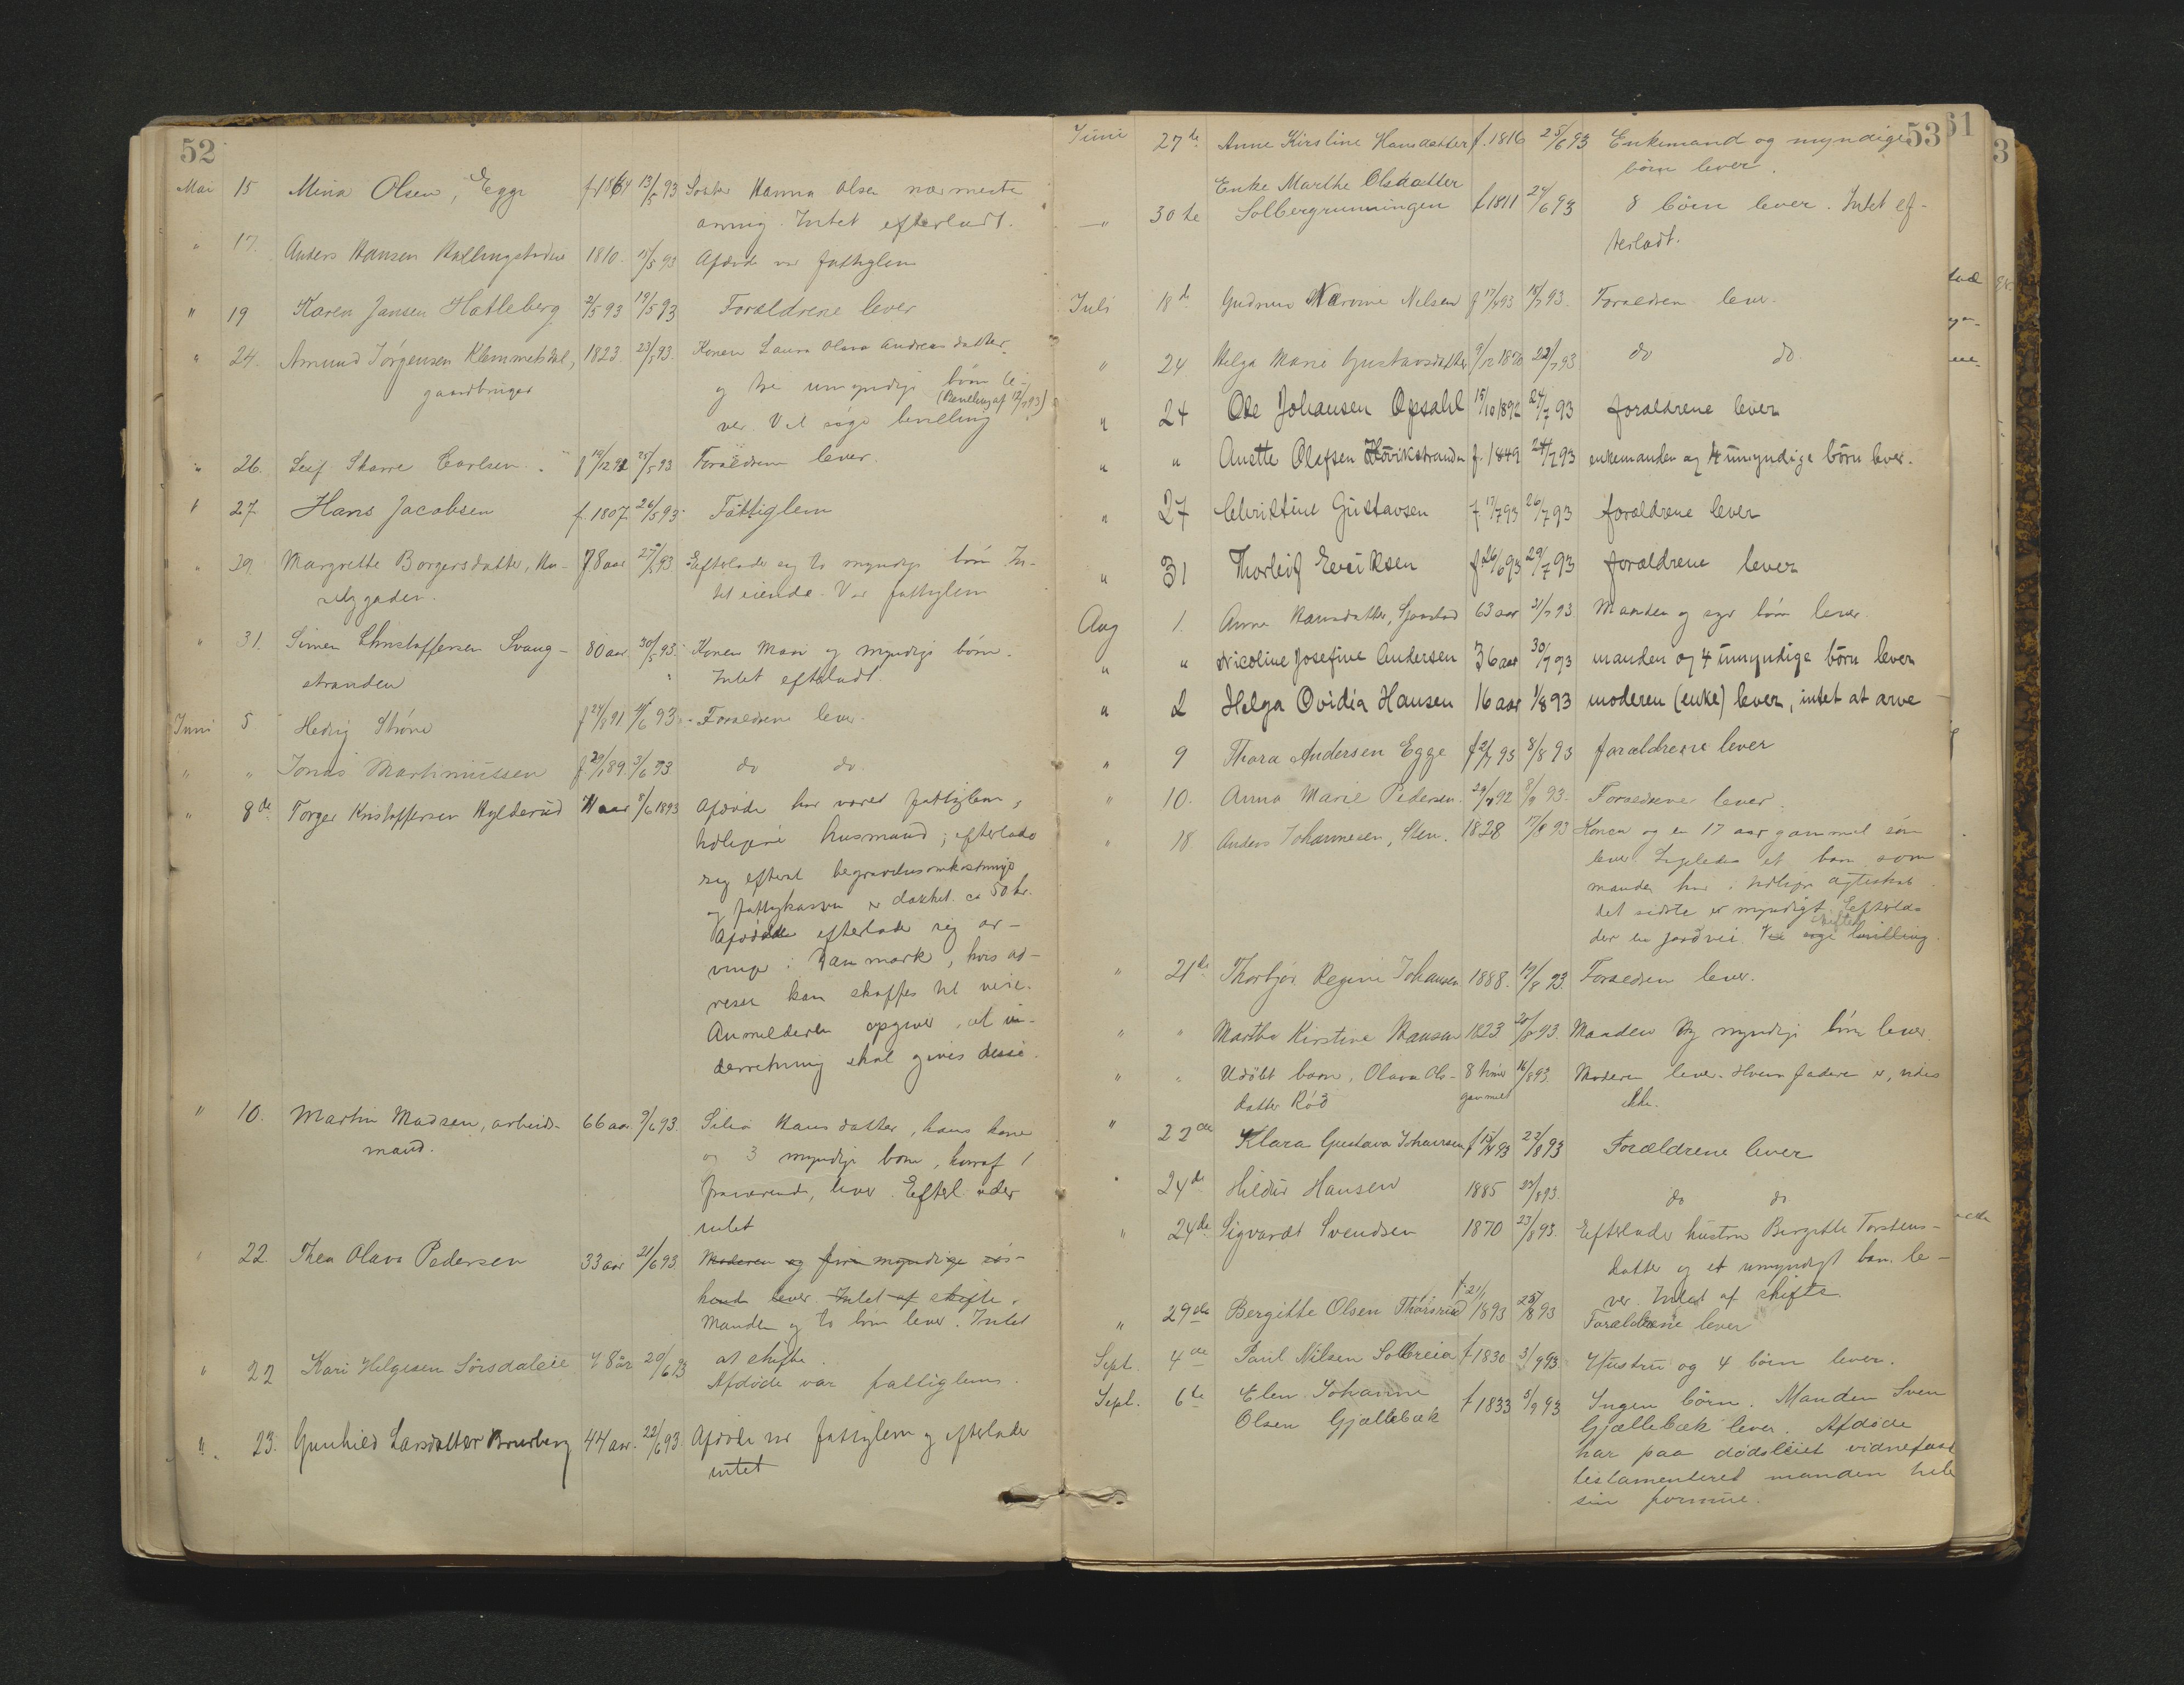 52
Mai 15 Mina Olsen, Egge f. 1864 13/5 93 Søster Hanna Olsen nærmeste
arving. Intet efterladt.
" 17. Anders Hansen 1810. 15/5 93 Afdøde var fattiglem
" 19 Karen Jansen Hatleberg 2/5 93 19/5 93 Forældrene lever
" 24. Amund Jørgensen Klemmetsdal, 1823. 23/5 93. Konen Laura Olava Andreasdatter
gaardbruger og tre umyndige børn le-
(Bevilling af 12/7 93)
ver. Vil søge bevilling
" 26. Leif Skarre Carlsen f 19/12 92 25/5 93 Forældrene lever.
" 27 Hans Jacobsen f. 1807 26/5 93 Fattiglem
" 29 Margrette Borgersdatter, Hu- 78 aar 27/5 93 Efterlader sig to myndige børn In-
rubygaden. tet eiende. Var fattiglem
" 31. Simen Christoffersen Svang- 80 aar 30/5 93. Konen Mari og myndige børn.
stranden Intet efterladt.
Juni 5. Hedvig Strøm f 24/2 91 4/6 93. Forældrene lever.
" " Jonas Martinussen f 20/1 89. 3/6 93 do do.
" 8de Torger Kristoffersen Hylderud 71 aar 8/6 1893 Afdøde har været fattiglem,
tidligere husmand; efterlader
sig efterat begravelsesomkostninger
og fattigkassen er dækket ca 50 kr.
Afdøde efterlader sig ar-
vinger i Danmark, hvis ad-
resser kan skaffes til veie.
Anmelderen opgiver, at un-
derretning skal gives disse.
" 10. Martin Madsen, arbeids- 66 aar 9/6 93. Silia Hansdatter, hans kone
mand. og 3 myndige børn, hvoraf 1
fraværende, lever. Efterlader
intet
" 22. Thea Olava Pedersen 33 aar 21/6 93. Moderen og fire myndige søs-
kende lever. Intet at skifte.
Manden og to børn lever. Intet
at skifte.
" 22 Kari Helgesen Sørsdaleie 78 år 20/6 93 Afdøde var fattiglem.
" 23. Gunhild Larsdatter Bruberg 44 aar. 22/6 93. Afdøde var fattiglem og efterlader
intet
53
61
3
Juni 27de Anne Kirstine Hansdatter f. 1816 25/6 93 Enkemand og myndige
børn lever.
Enke Marthe Olsdatter
" 30te Solbergrunningen f 1811 24/6 93 8 børn lever. Intet ef-
terladt.
Juli 18de Gudrun Narvine Nilsen f 17/4 93 18/7 93. Forældrene lever.
" 24 Helga Marie Gustavsdatter 9/12 1870 22/7 93 do do.
" 24 Ole Johansen Opsahl 15/10 1892 24/7 93 forældrene lever
" " Anette Olefsen Høvikstranden f. 1849 24/7 93 enkemanden og 4 umyndige børn lever.
" 27 Christine Gustavsen f 17/7 93 26/7 93 forældrene lever
" 31 Thorleif Eeriksen f 26/6 93 29/7 93 forældrene lever
Aug 1. Anne Hansdatter, 63 aar 31/7 93. Manden og syv børn lever
" " Nicoline Josefine Andersen 36 aar 30/7 93 manden og 4 umyndige børn lever
" 2 Helga Ovidia Hansen 16 aar 1/8 93 moderen (enke) lever, intet at arve
" 9 Thora Andersen Egge f 2/7 93 8/8 93 forældrene lever
" 10. Anna Marie Pedersen. 29/7 92 8/8 93. Forældrene lever.
" 18 Anders Johannesen, Sten. 1828 17/8 93 Konen og en 17 aar gammel søn
lever. Ligeledes et barn som
manden har i tidligere ægteskab.
det sidste er myndigt. Efterla-
skiftes
der en jordvei. Vil søge bevilling.
" 21de Thorbjør Regine Johansen 1888. 19/8 93. Forældrene lever.
" " Martha Kirstine Hansen 1823 20/8 93. Manden og myndige børn lever
" " Udøbt barn, Olava Ols- 8 timer 16/8 93. Moderen lever. Hvem faderen er, vides
datter Rød gammel ikke.
" 22de Klara Gustava Johansen f 15/4 93 22/8 93 Forældrene lever
" 24de Hildur Hansen 1885 23/8 93. do do.
" 24de Sigvardt Svendsen 1870 23/8 93. Efterlader hustru Birgitte Torstens-
datter og et umyndigt barn le-
ver. Intet at skifte.
" 29de Bergitte Olsen Thorsrud f. 21/1 1893 25/8 93 Forældrene lever
Sept. 4de Paul Nilsen Solbreia f 1830 3/9 93. Hustru og 4 børn lever.
Sept. 6te Elen Johanne f 1833 5/9 93 Ingen børn. Manden Sven
Olsen Gjællebæk Gjællebæk lever. Afdøde
har paa dødsleiet vidnefast
testamenteret manden hele
sin formue.